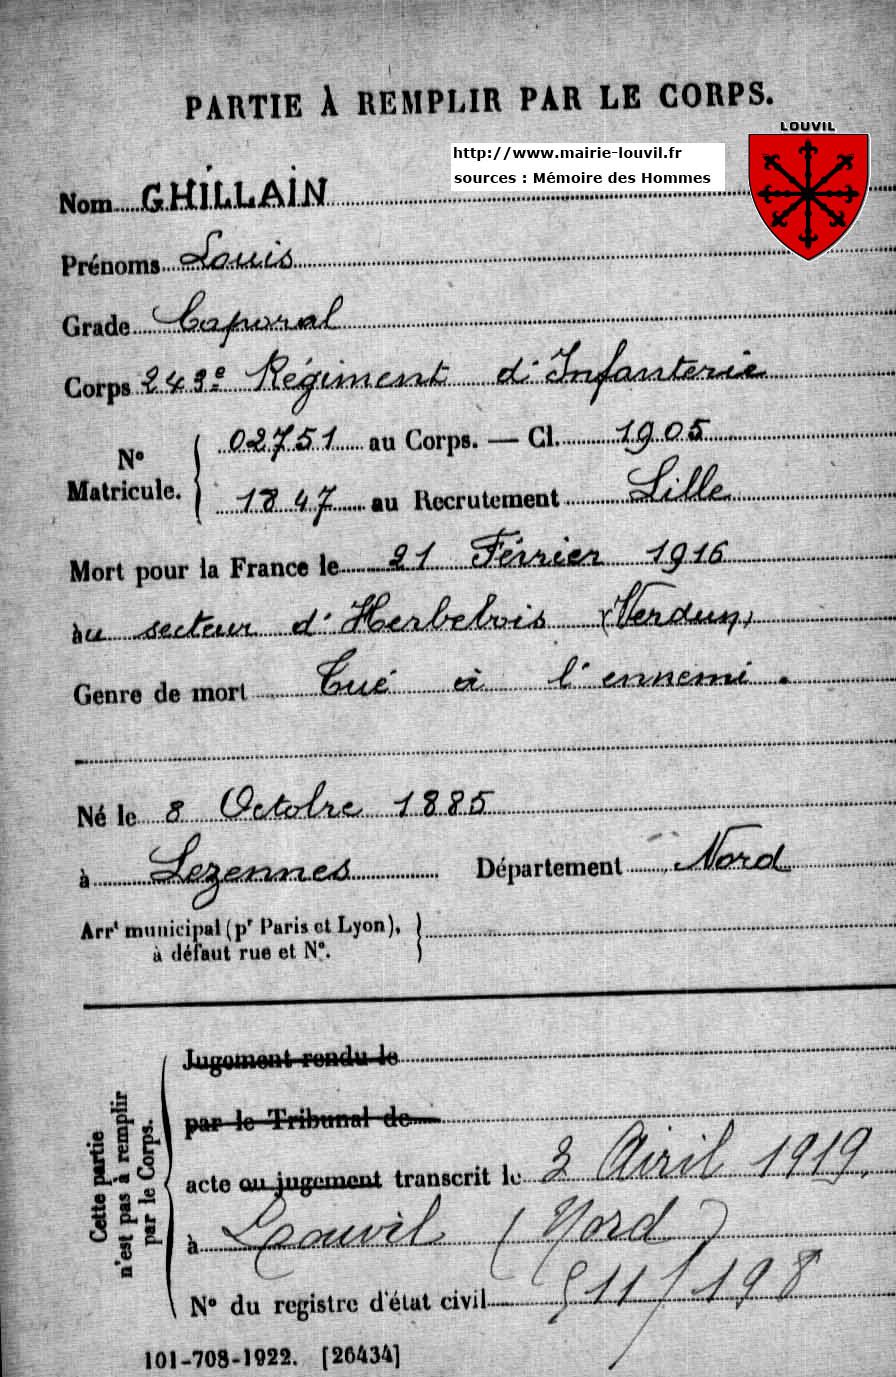 PARTIE À REMPLIR PAR LE CORPS.
LOUVIL
http://www.mairie-louvil.fr
sources : Mémoire des Hommes
Nom GHILLAIN
Prénoms Louis
Grade Caporal
Corps 243e Régiment d'Infanterie
No Matricule. 02751 au Corps. — Cl. 1905
1847 au Recrutement Lille
Mort pour la France le 21 Février 1916
àu secteur d'Herbebois (Verdun)
Genre de mort Tué à l'ennemi.
Né le 8 Octobre 1885
à Lezennes Département Nord
Arrt municipal (pr Paris et Lyon),
à défaut rue et No.
Cette partie
n'est pas à remplir
par le Corps.
Jugement rendu le
par le Tribunal de
acte ou jugement transcrit le 3 Avril 1919.
à Louvil (Nord)
No du registre d'état civil 511/198
101-708-1922. [26434]